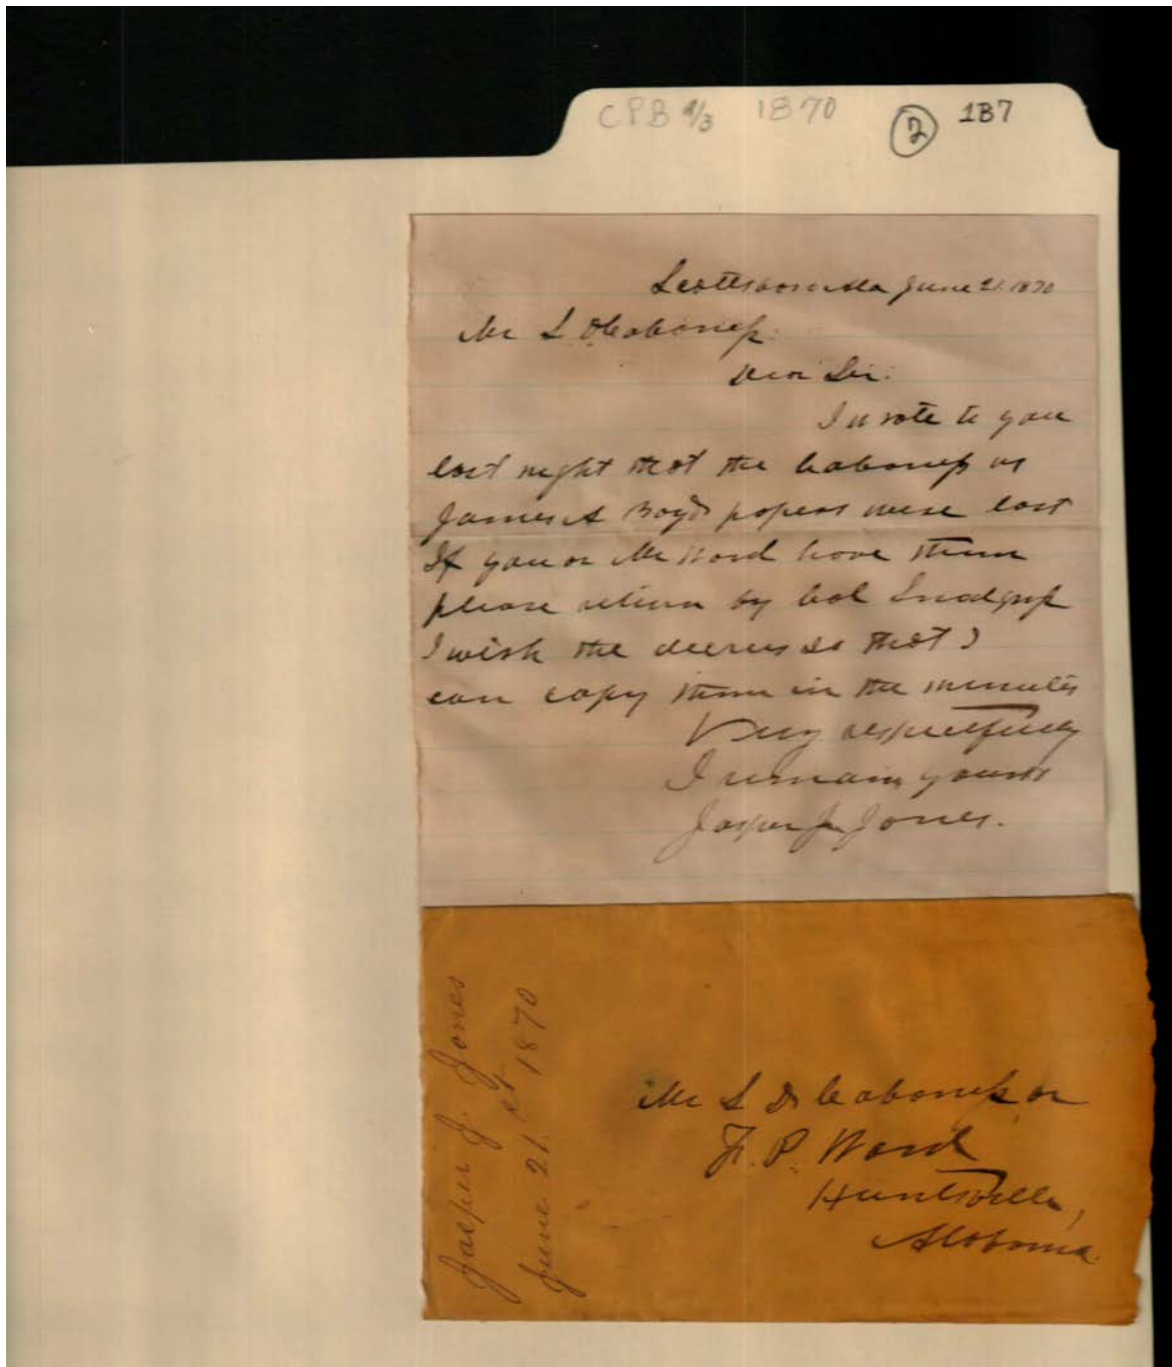 CPB 2/3 1870 2 1B7
Scottsboro Ala June 21. 1870
Mr S. D. Cabaness.
Dear Sir:
I wrote to you
last night that the Cabaness vs
James A Boyd papers were lost
If you or Mr Ward have them
please return by Col Snodgrass
I wish the decrees so that I
can copy them in the minutes
Very respectfully
I remain yours
Jasper J. Jones.
Mr S D Cabaness or
F. P. Ward
Huntsville,
Alabama.
Jasper J. Jones
June 21. st 1870